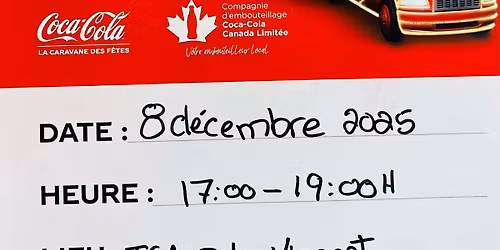 Coca-Cola
LA CARAVANE DES FÊTES
Compagnie
d'embouteillage
Coca-Cola
Canada Limitée
Votre embouteilleur local
DATE : 8 décembre 2025
HEURE : 17:00 - 19:00H